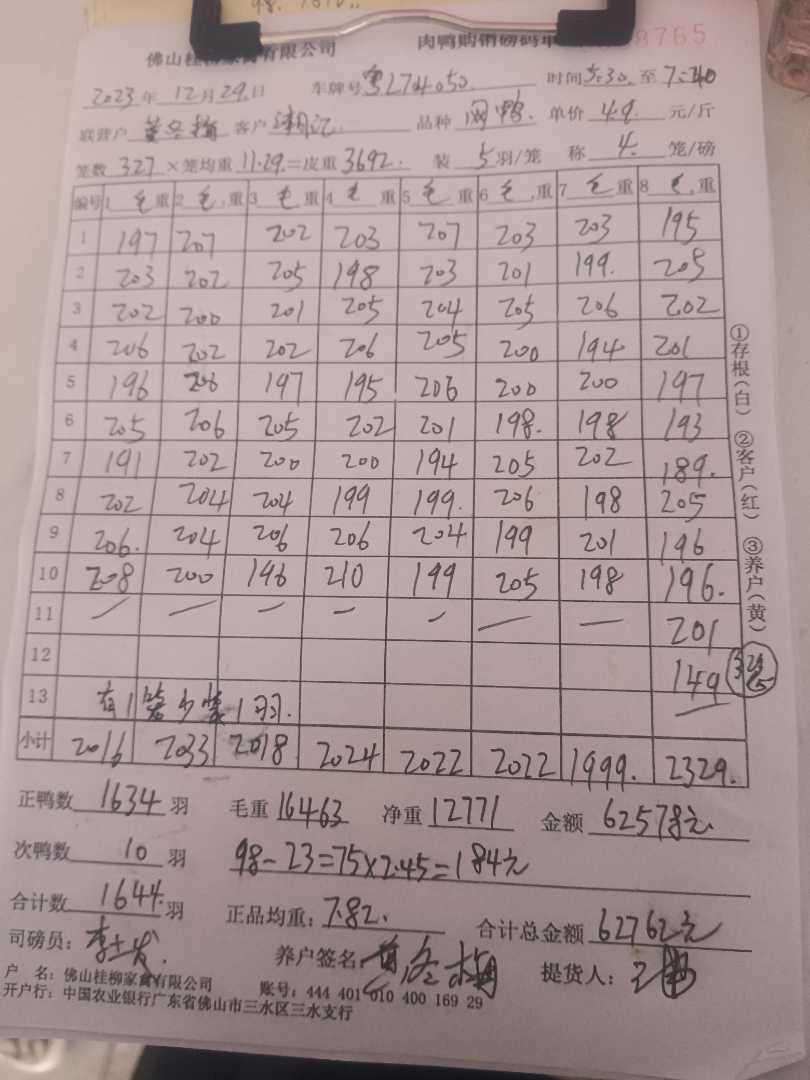 佛山桂柳家禽有限公司 肉鸭购销磅码单 8765
2023年12月29日 车牌号 粤2704050. 时间5:30.至7:40
联营户 客户 品种 单价 4.9. 元/斤
笼数 327 ×笼均重 11.29.=皮重 3692. 装 5 羽/笼 称 4. 笼/磅
编号 1 毛 重 2 毛 重 3 毛 重 4 毛 重 5 毛 重 6 毛 重 7 毛 重 8 毛 重
1 197 207 202 203 207 203 203 195
2 203 202 205 198 203 201 199. 205
3 202 200 201 205 204 205 206 202
4 206 202 202 206 205 200 194 201
5 196 206 197 195 206 200 200 197
6 205 206 205 202 201 198. 198 193
7 191 202 200 200 194 205 202 189.
8 202 204 204 199 199. 206 198 205
9 206. 204 206 206 204 199 201 196
10 208 200 196 210 199 205 198 196.
11 — — — — — — — 201
12 149
13 有1笼少装1羽.
小计 2016 2033 2018 2024 2022 2022 1999. 2329.
正鸭数 1634 羽 毛重 16463 净重 12771 金额 62578元
次鸭数 10 羽 98-23=75×2.45=184元
合计数 1644 羽 正品均重: 7.82. 合计总金额 62762元
司磅员: 养户签名: 提货人:
户 名: 佛山桂柳家禽有限公司 账号: 444 401 010 400 169 29
开户行: 中国农业银行广东省佛山市三水区三水支行
①存根(白) ②客户(红) ③养户(黄)